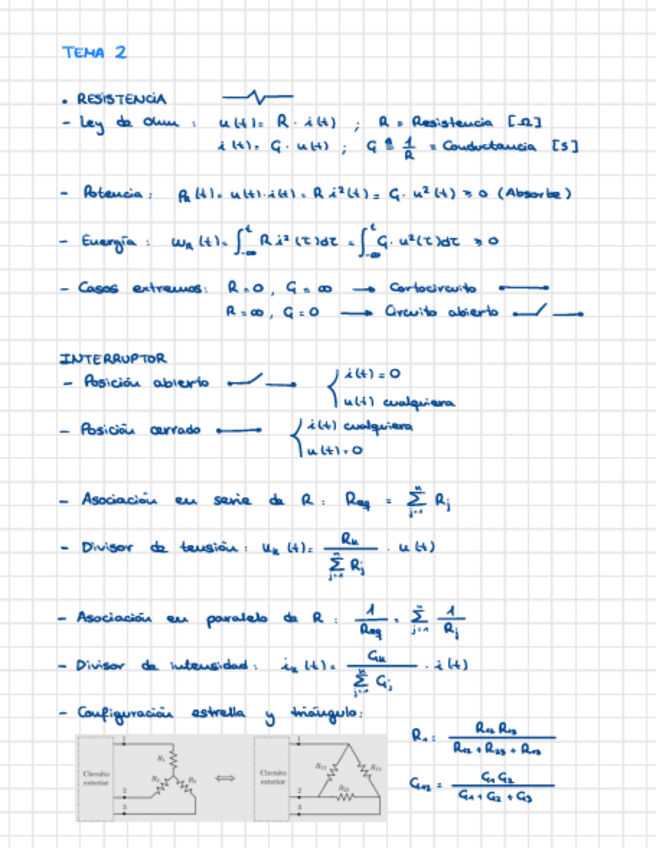 TEMA 2
• RESISTENCIA
- Ley de Ohm : u(t) = R · i(t) ; R = Resistencia [Ω]
i(t) = G · u(t) ; G ≜ 1/R = Conductancia [S]
- Potencia : P_R(t) = u(t)·i(t) = R i²(t) = G · u²(t) ≥ 0 (Absorbe)
- Energía : w_R(t) = ∫_{-∞}^{t} R i²(τ)dτ = ∫_{-∞}^{t} G · u²(τ)dτ ≥ 0
- Casos extremos: R = 0, G = ∞ → Cortocircuito
R = ∞, G = 0 → Circuito abierto
INTERRUPTOR
- Posición abierto { i(t) = 0
u(t) cualquiera
- Posición cerrado { i(t) cualquiera
u(t) = 0
- Asociación en serie de R : R_eq = Σ_{j=1}^{n} R_j
- Divisor de tensión : u_k(t) = R_k / Σ_{j=1}^{n} R_j · u(t)
- Asociación en paralelo de R : 1/R_eq = Σ_{j=1}^{n} 1/R_j
- Divisor de intensidad : i_k(t) = G_k / Σ_{j=1}^{n} G_j · i(t)
- Configuración estrella y triángulo:
R_1 = R_12 R_13 / R_12 + R_23 + R_13
G_12 = G_1 G_2 / G_1 + G_2 + G_3
Circuito
exterior
1
2
3
R_1
R_2
R_3
Circuito
exterior
1
2
3
R_12
R_13
R_23